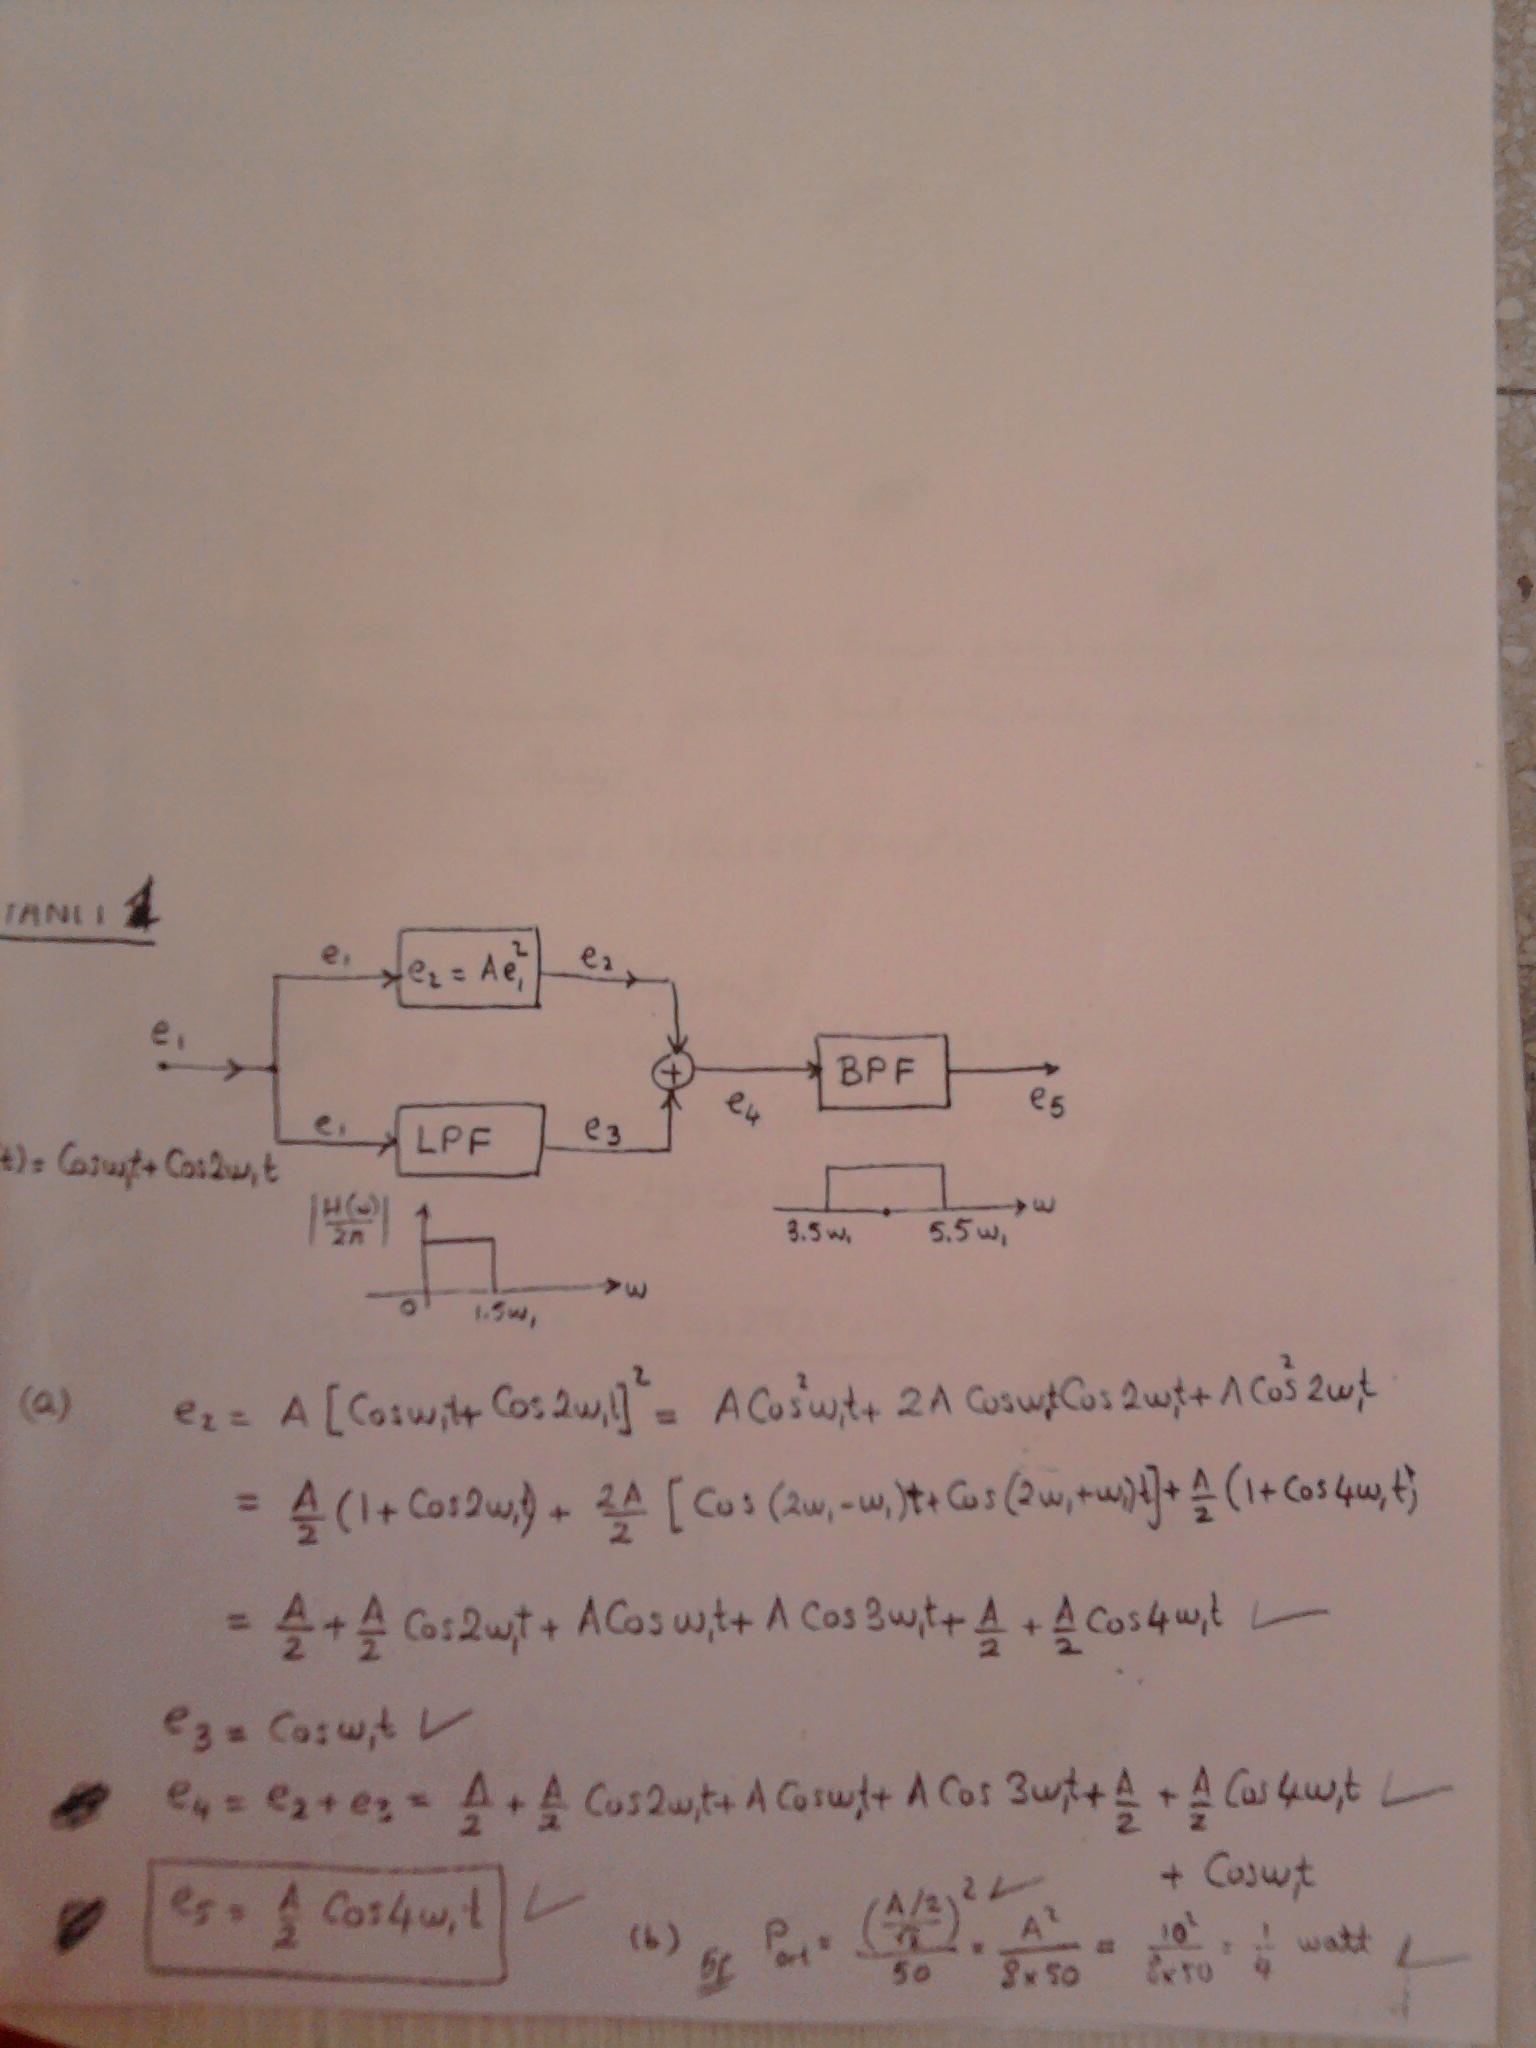 1
e₁
e₂ = Ae₁²
e₂
e₁
+
BPF
e₄
e₅
e₁
LPF
e₃
t) = Cosω₁t + Cos2ω₁t
|H(ω)/2π|
ω
0
1.5ω₁
ω
3.5ω₁
5.5ω₁
(a) e₂ = A [Cosω₁t + Cos2ω₁t]² = A Cos²ω₁t + 2A Cosω₁t Cos2ω₁t + A Cos²2ω₁t
= A/2 (1 + Cos2ω₁t) + 2A/2 [Cos(2ω₁-ω₁)t + Cos(2ω₁+ω₁)t] + A/2 (1 + Cos4ω₁t)
= A/2 + A/2 Cos2ω₁t + A Cosω₁t + A Cos3ω₁t + A/2 + A/2 Cos4ω₁t ✓
e₃ = Cosω₁t ✓
e₄ = e₂ + e₃ = A/2 + A/2 Cos2ω₁t + A Cosω₁t + A Cos3ω₁t + A/2 + A/2 Cos4ω₁t ✓
+ Cosω₁t
e₅ = A/2 Cos4ω₁t ✓
(b) P = ((A/2)/√2)² ✓ / 50 = A²/(8×50) = 10²/(8×50) = 1/4 watt ✓